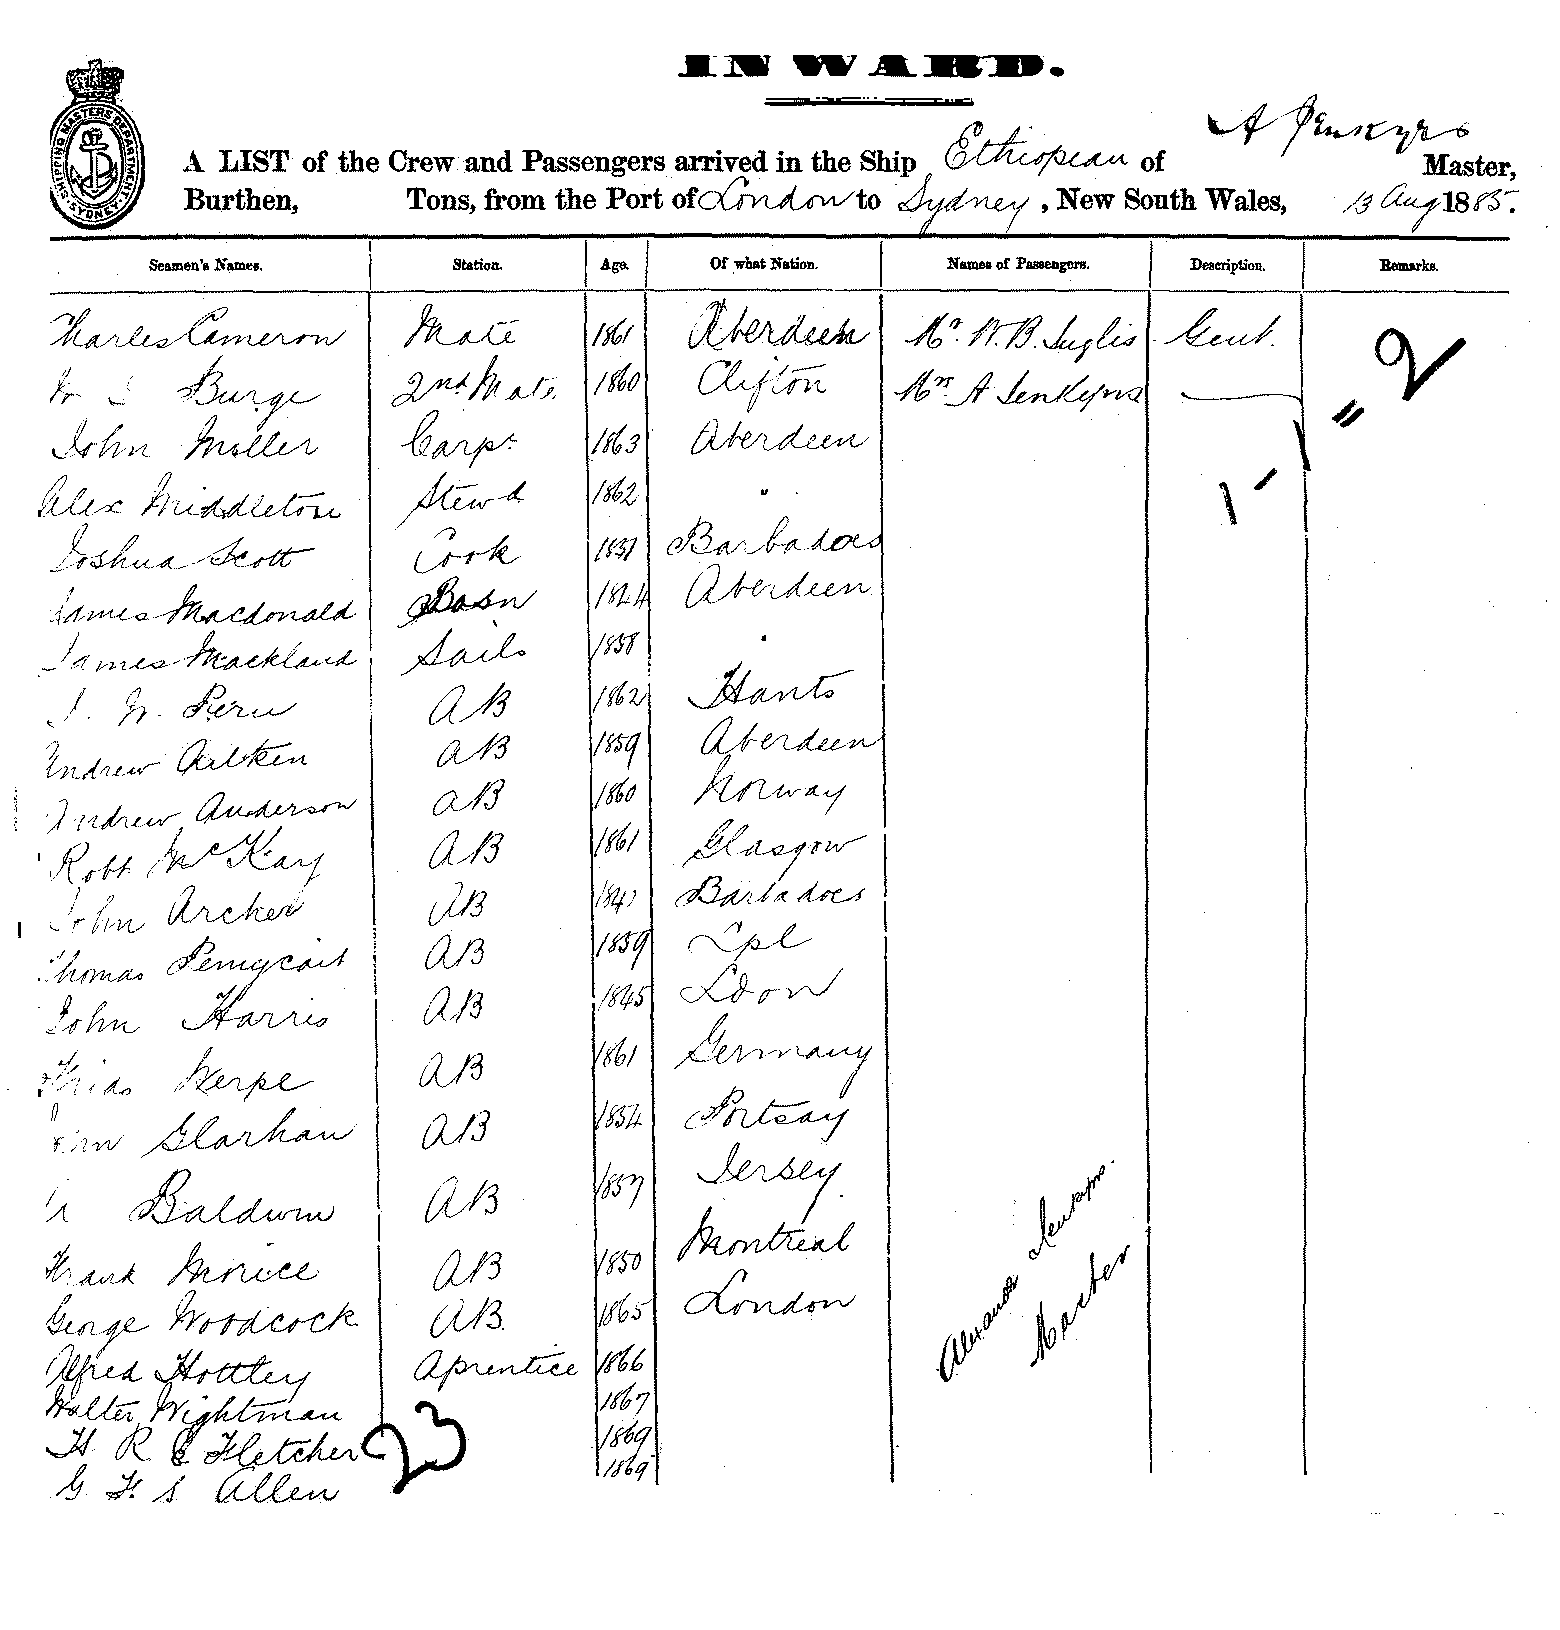 INWARD.
SHIPPING MASTERS DEPARTMENT. SYDNEY.
A Jenkyns
A LIST of the Crew and Passengers arrived in the Ship Ethiopean of Master,
Burthen, Tons, from the Port of London to Sydney, New South Wales, 13 Aug 1885.
Seamen's Names. Station. Age. Of what Nation. Names of Passengers. Description. Remarks.
Charles Cameron Mate 1861 Aberdeen Mr. W. B. Inglis Gent. 2
Burge 2nd Mate 1860 Clifton Mrs A Jenkyns "
John Moller Carpr 1863 Aberdeen
Alex Middleton Stewd 1862 " 1 -
Joshua Scott Cook 1837 Barbadoes
James Macdonald Bosn 1844 Aberdeen
James Mackland Sails 1838 "
J. W. Peru AB 1862 Hants
Andrew Aitken AB 1859 Aberdeen
Andrew Anderson AB 1860 Norway
Robt McKay AB 1861 Glasgow
John Archer AB Barbadoes
Thomas AB 1859 Lpl
John Harris AB 1845 Ldon
Werpe AB 1861 Germany
Glarhan AB 1854 Portsay
Baldwin AB 1857 Jersey
Frank Morice AB 1850 Montreal
George Woodcock AB. 1865 London
Alfred Hottley Aprentice 1866
Walter Wightman 1867
H R C Fletcher 1869
G F S Allen 1869
23
Alexander Jenkyns.
Master